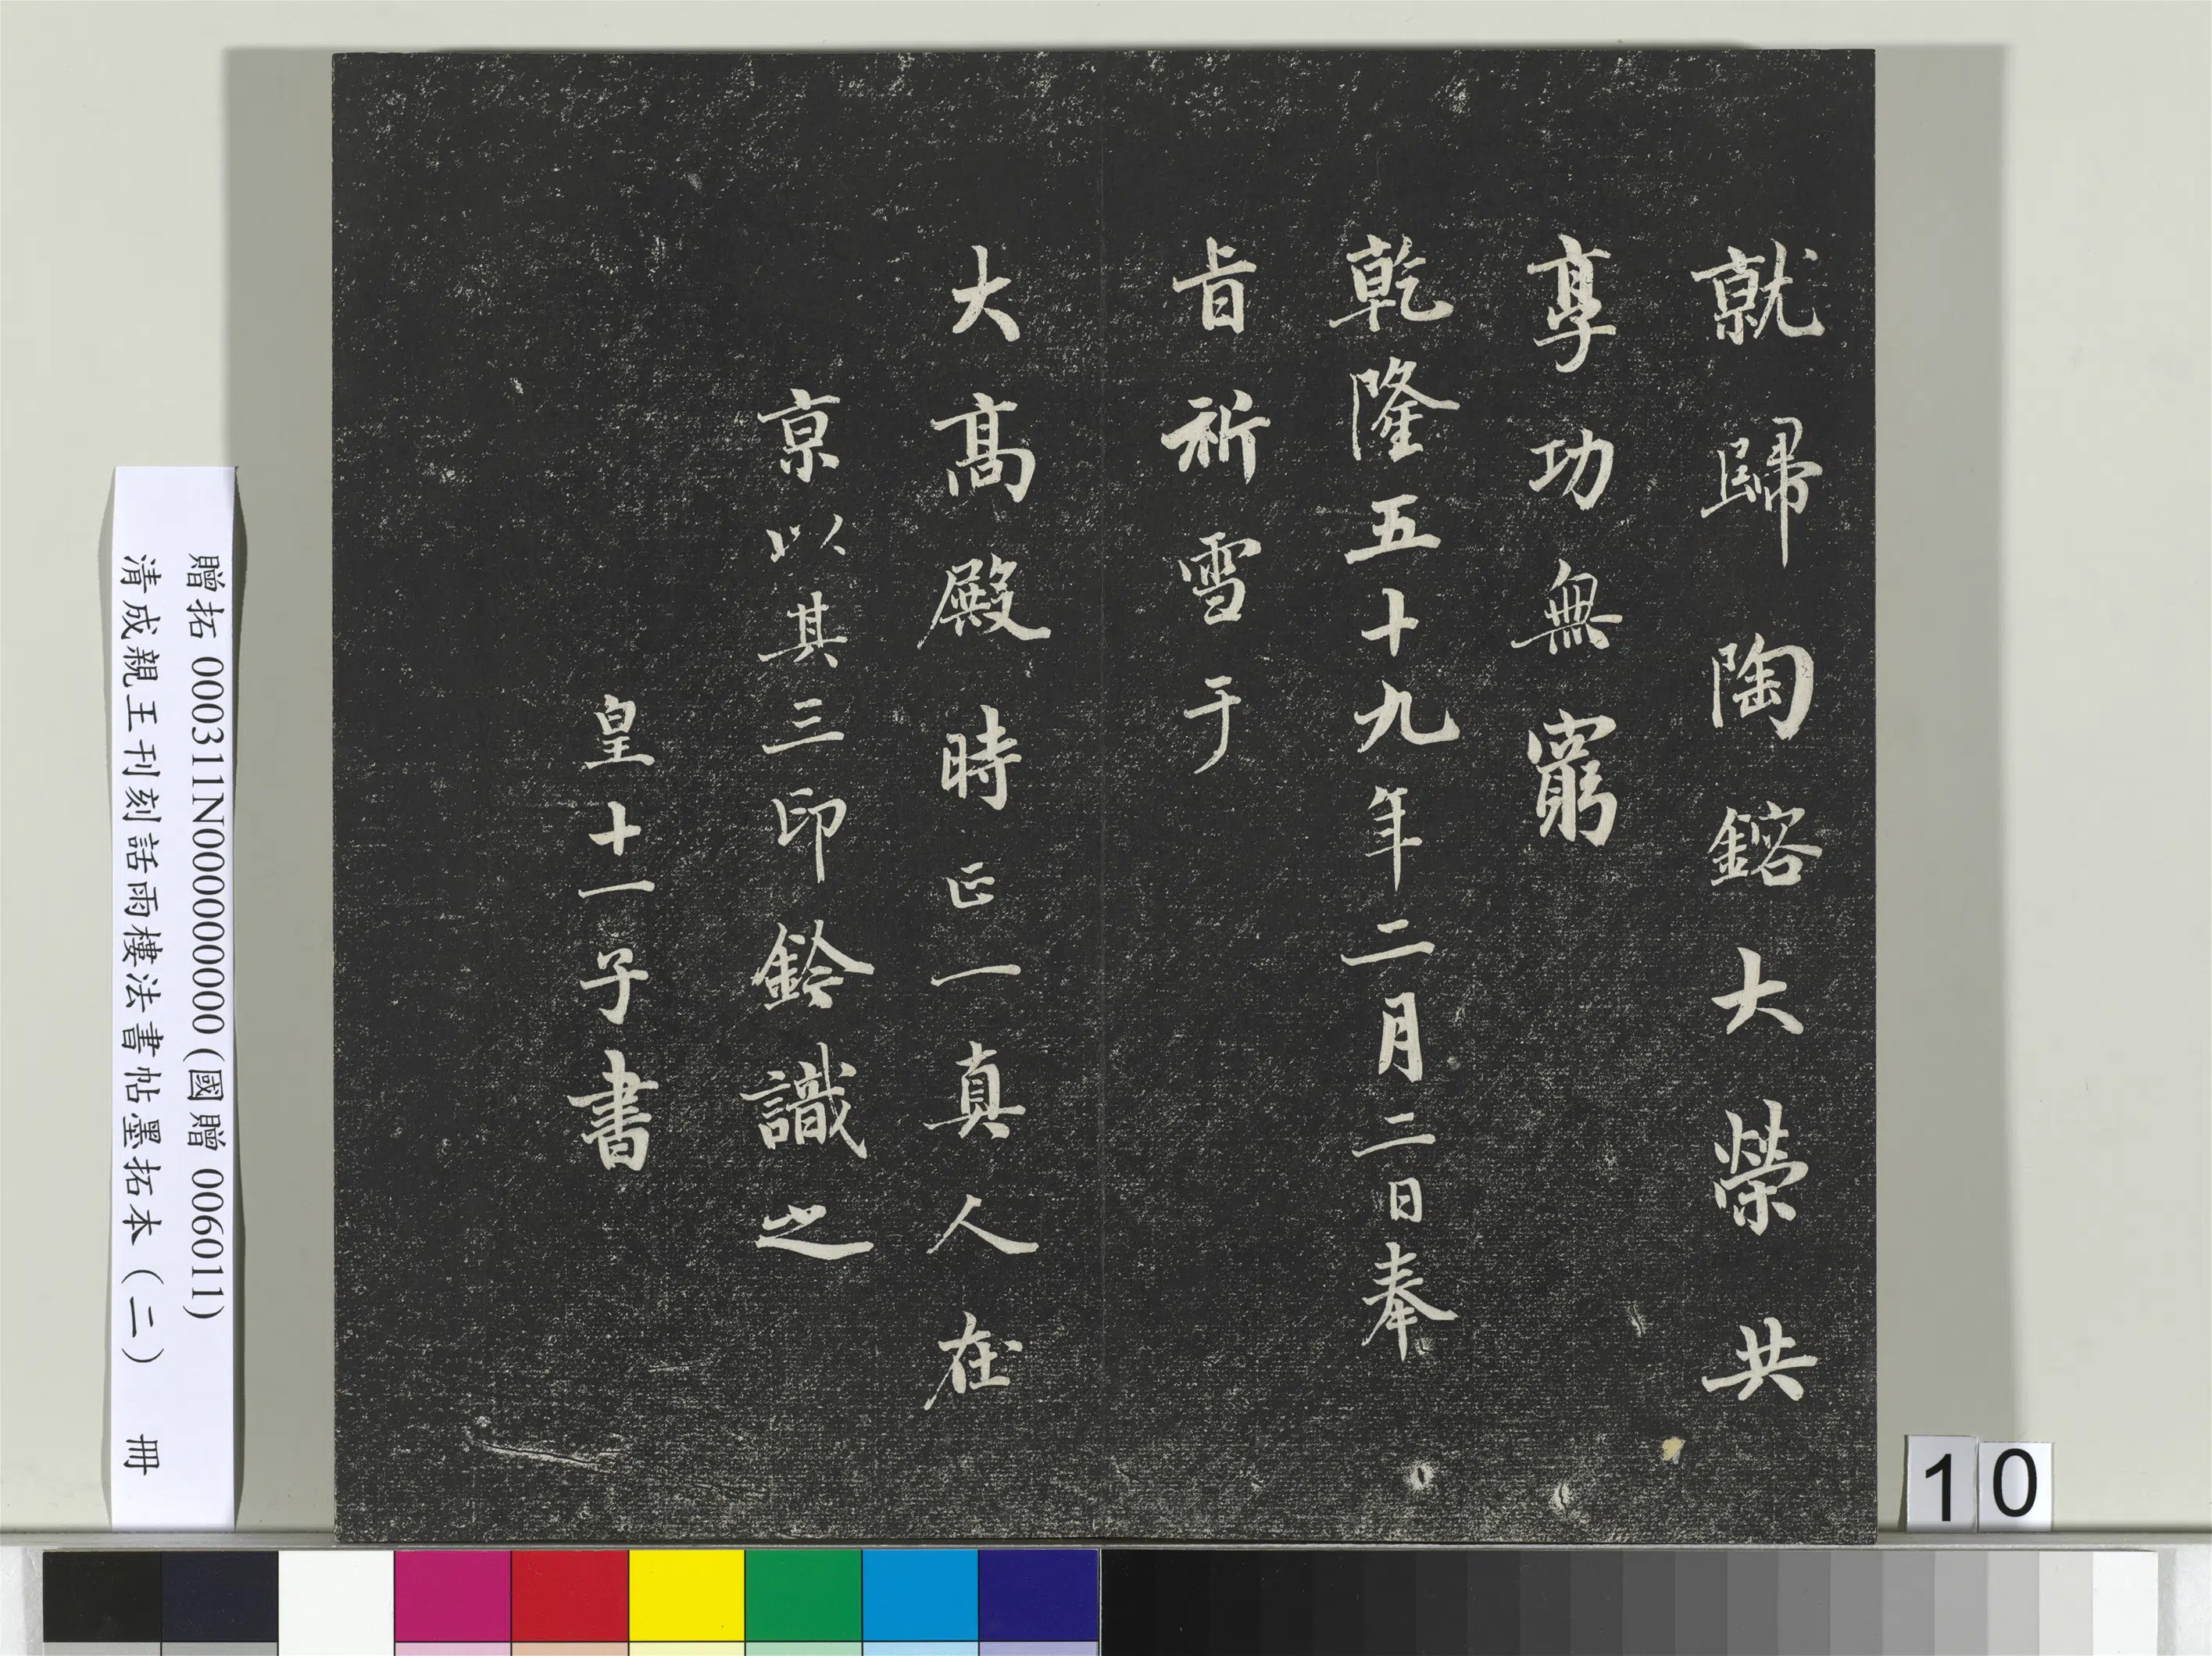 就歸陶鎔大榮共
享功無窮
乾隆五十九年二月二日奉
旨祈雪于
大高殿時正一真人在
京以其三印鈐識之
皇十一子書
贈拓 000311N000000000 (國贈 006011)
清成親王刊刻詒雨樓法書帖墨拓本（二） 冊
10